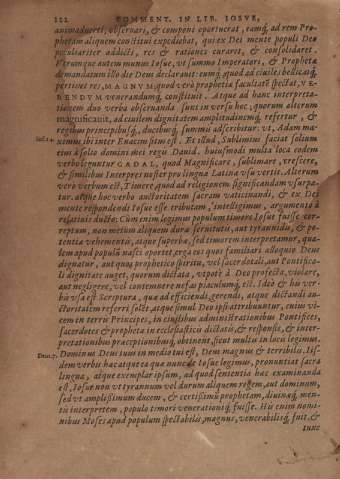 122 COMMENT. IN LIB. IOSVE,
animaduerti, obseruari, & componi oportuerat, eamq; ad rem Pro-
phetam aliquem constitui expediebat, qui ex Dei mente populi Deo
peculiariter addicti, res & rationes curaret, & consolidaret.
Verumque autem munus Iosue, vt summo Imperatori, & Propheta
demandatum illo die Dem declarauit: eumq; quod ad ciuiles
pertinet res, MAGNVM; quod verò prophetia facultatē spectat, VE-
RENDVM venerandumq; constituit. Atque ad hanc interpreta-
tionem duo verba obseruanda sunt in versu hoc, quorum alterum
magnificauit, ad ciuilem dignitatem amplitudinemq; refertur, &
regibus principibusq;, ducibusq; summis adscribitur. vt, Adam ma-
Iosu. 4.
Enacim sitm est. Et illud, Sublimius faciat solium
eius à solio domini mei regis Dauid. huiusmodi multa loca eodem
verbo leguntur GADAL, quod Magnificare, sublimare, crescere,
& similibus Interpres noster pro lingua Latina vsu vertit. Alterum
verò verbum est, Timere quod ad religionem significandam vsurpa-
tur. atque hoc verbo auctoritatem sacram vaticinandi, & ex Dei
mente respondendi Iosue esse tributam, intelligimus, argumento à
relatiuis ducto: Cum enim legimus populum timore Iosue fuisse cor-
reptum, non metum aliquem dura seruitutis, aut tyrannidis, & po-
tentia vehementis, atque superba, sed timorem interpretamur, qua-
lem apud populum nasci oportet, erga eos quos familiari alloquio Deus
dignatur, aut quoq; prophetico spiritu, vel sacerdotali, aut Pontifica-
li dignitate auget, quorum dictata, vtpotè à Deo profecta, violare,
aut negligere, vel contemnere nefas piaculumq; est. Ideò & his ver-
bis vsa est Scriptura, qua ad efficiendi, gerendi, atque dictandi au-
ctoritatem referri solet, atque simul Deo ipsi attribuuntur, cuius vi-
cem in terris Principes, in ciuilibus administrationibus Pontifices,
sacerdotes & propheta in ecclesiasticis dictatis, & responsis, & inter-
pretationibus praeceptionibusq; obtinent, sicut multis in locis legimus.
Deut. 7.
Dominus Deus tuus in medio tui est, Deus magnus & terribilis. Iis-
dem verbis hac atque ea qua nunc de Iosue legimus, pronuntiat sacra
lingua, atque exemplar ipsum, ad quod sententia hac examinanda
est, Iosue non vt tyrannum vel durum aliquem regem, aut dominum,
sed vt amplissimum ducem, & certissimū prophetam, diuinaq; men-
tis interpretem, populo timori venerationiq; fuisse. His enim nomi-
nibus Moses apud populum spectabilis, magnus, venerabilisq; fuit, &
tunc